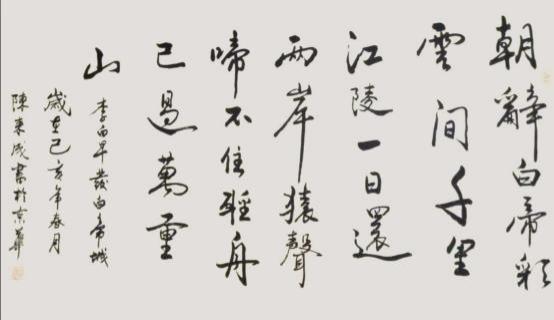 朝辭白帝彩
雲間千里
江陵一日還
兩岸猿聲
啼不住輕舟
已過萬重
山
李白早發白帝城
歲在己亥年春月
陳東成書於京華